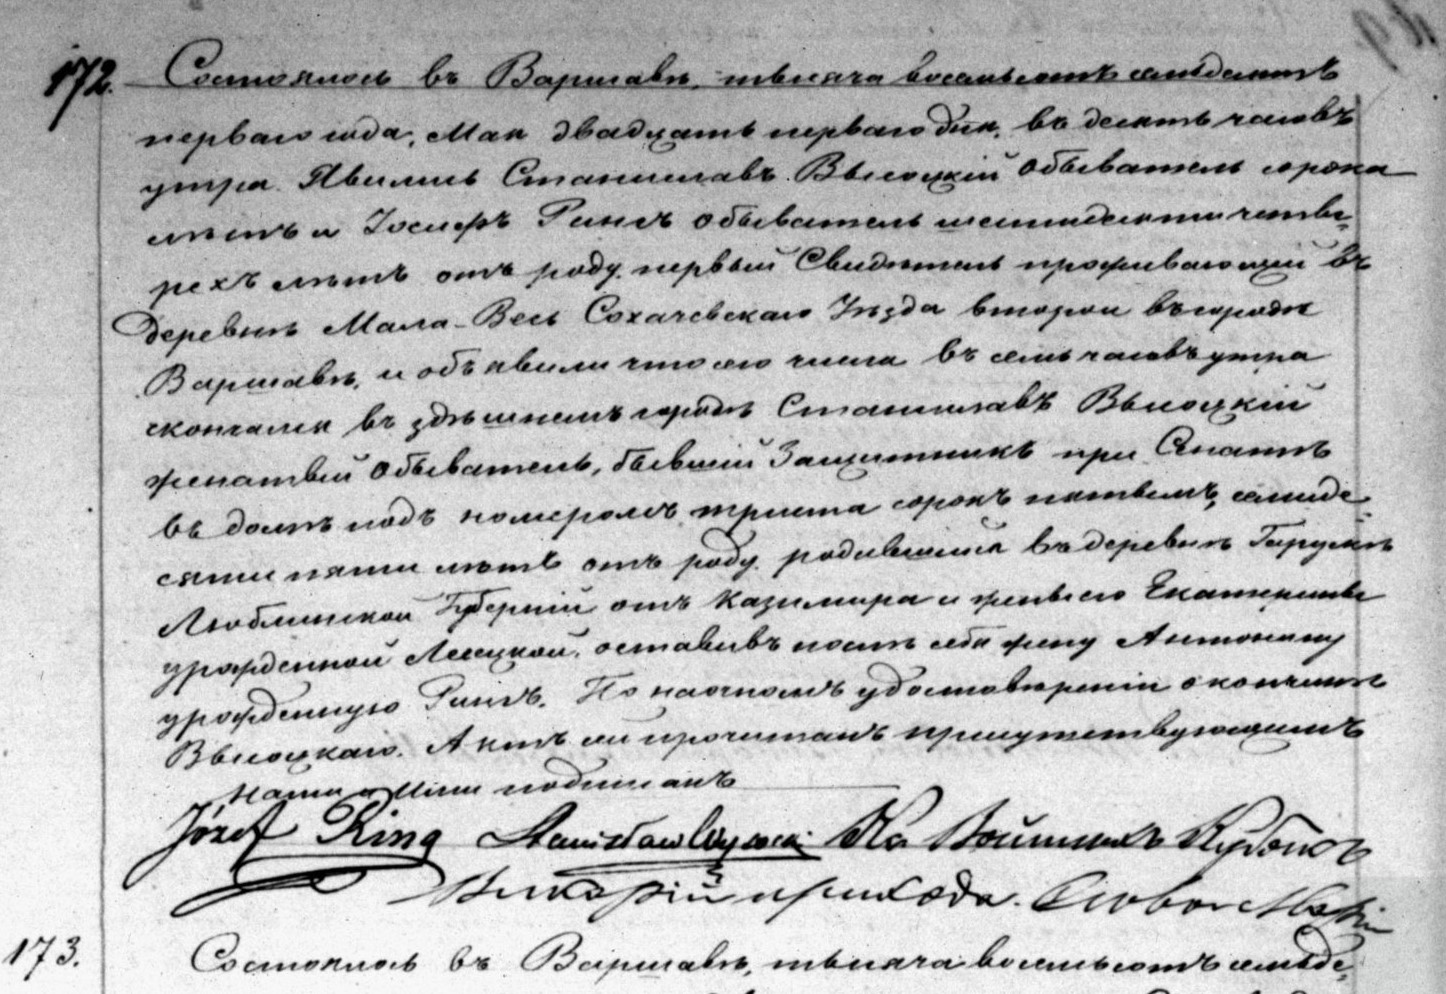 172. Состоялось въ Варшавѣ, тысяча восемьсотъ семьдесятъ
перваго года, Мая двадцать перваго дня, въ десять часовъ
утра. Явились Станиславъ Высоцкій обыватель сорока
лѣтъ и Іосифъ Рингъ обыватель шестидесяти четы-
рехъ лѣтъ отъ роду, первый Свидѣтель проживающій въ
деревнѣ Мала-Весь Сохачевскаго Уѣзда второй въ городѣ
Варшавѣ, и объявили что сего числа въ семь часовъ утра
скончался въ здѣшнемъ городѣ Станиславъ Высоцкій
женатый обыватель, бывшій Защитникъ при Сенатѣ
въ домѣ подъ номеромъ триста сорокъ пятымъ, семиде-
сяти пяти лѣтъ отъ роду, родившійся въ деревнѣ
Люблинской Губерніи отъ Казимира и жены его Екатерины
урожденной, оставивъ послѣ себя жену Антонину
урожденную Рингъ. По наочномъ удостовѣреніи о кончинѣ
Высоцкаго. Актъ сей прочитанъ присутствующимъ
Нами и Ими подписанъ
Józef Ring Stanisław Wysocki Кс. Войтѣхъ
Викарій прихода. Св.
173. Состоялось въ Варшавѣ, тысяча восемьсотъ семьде-